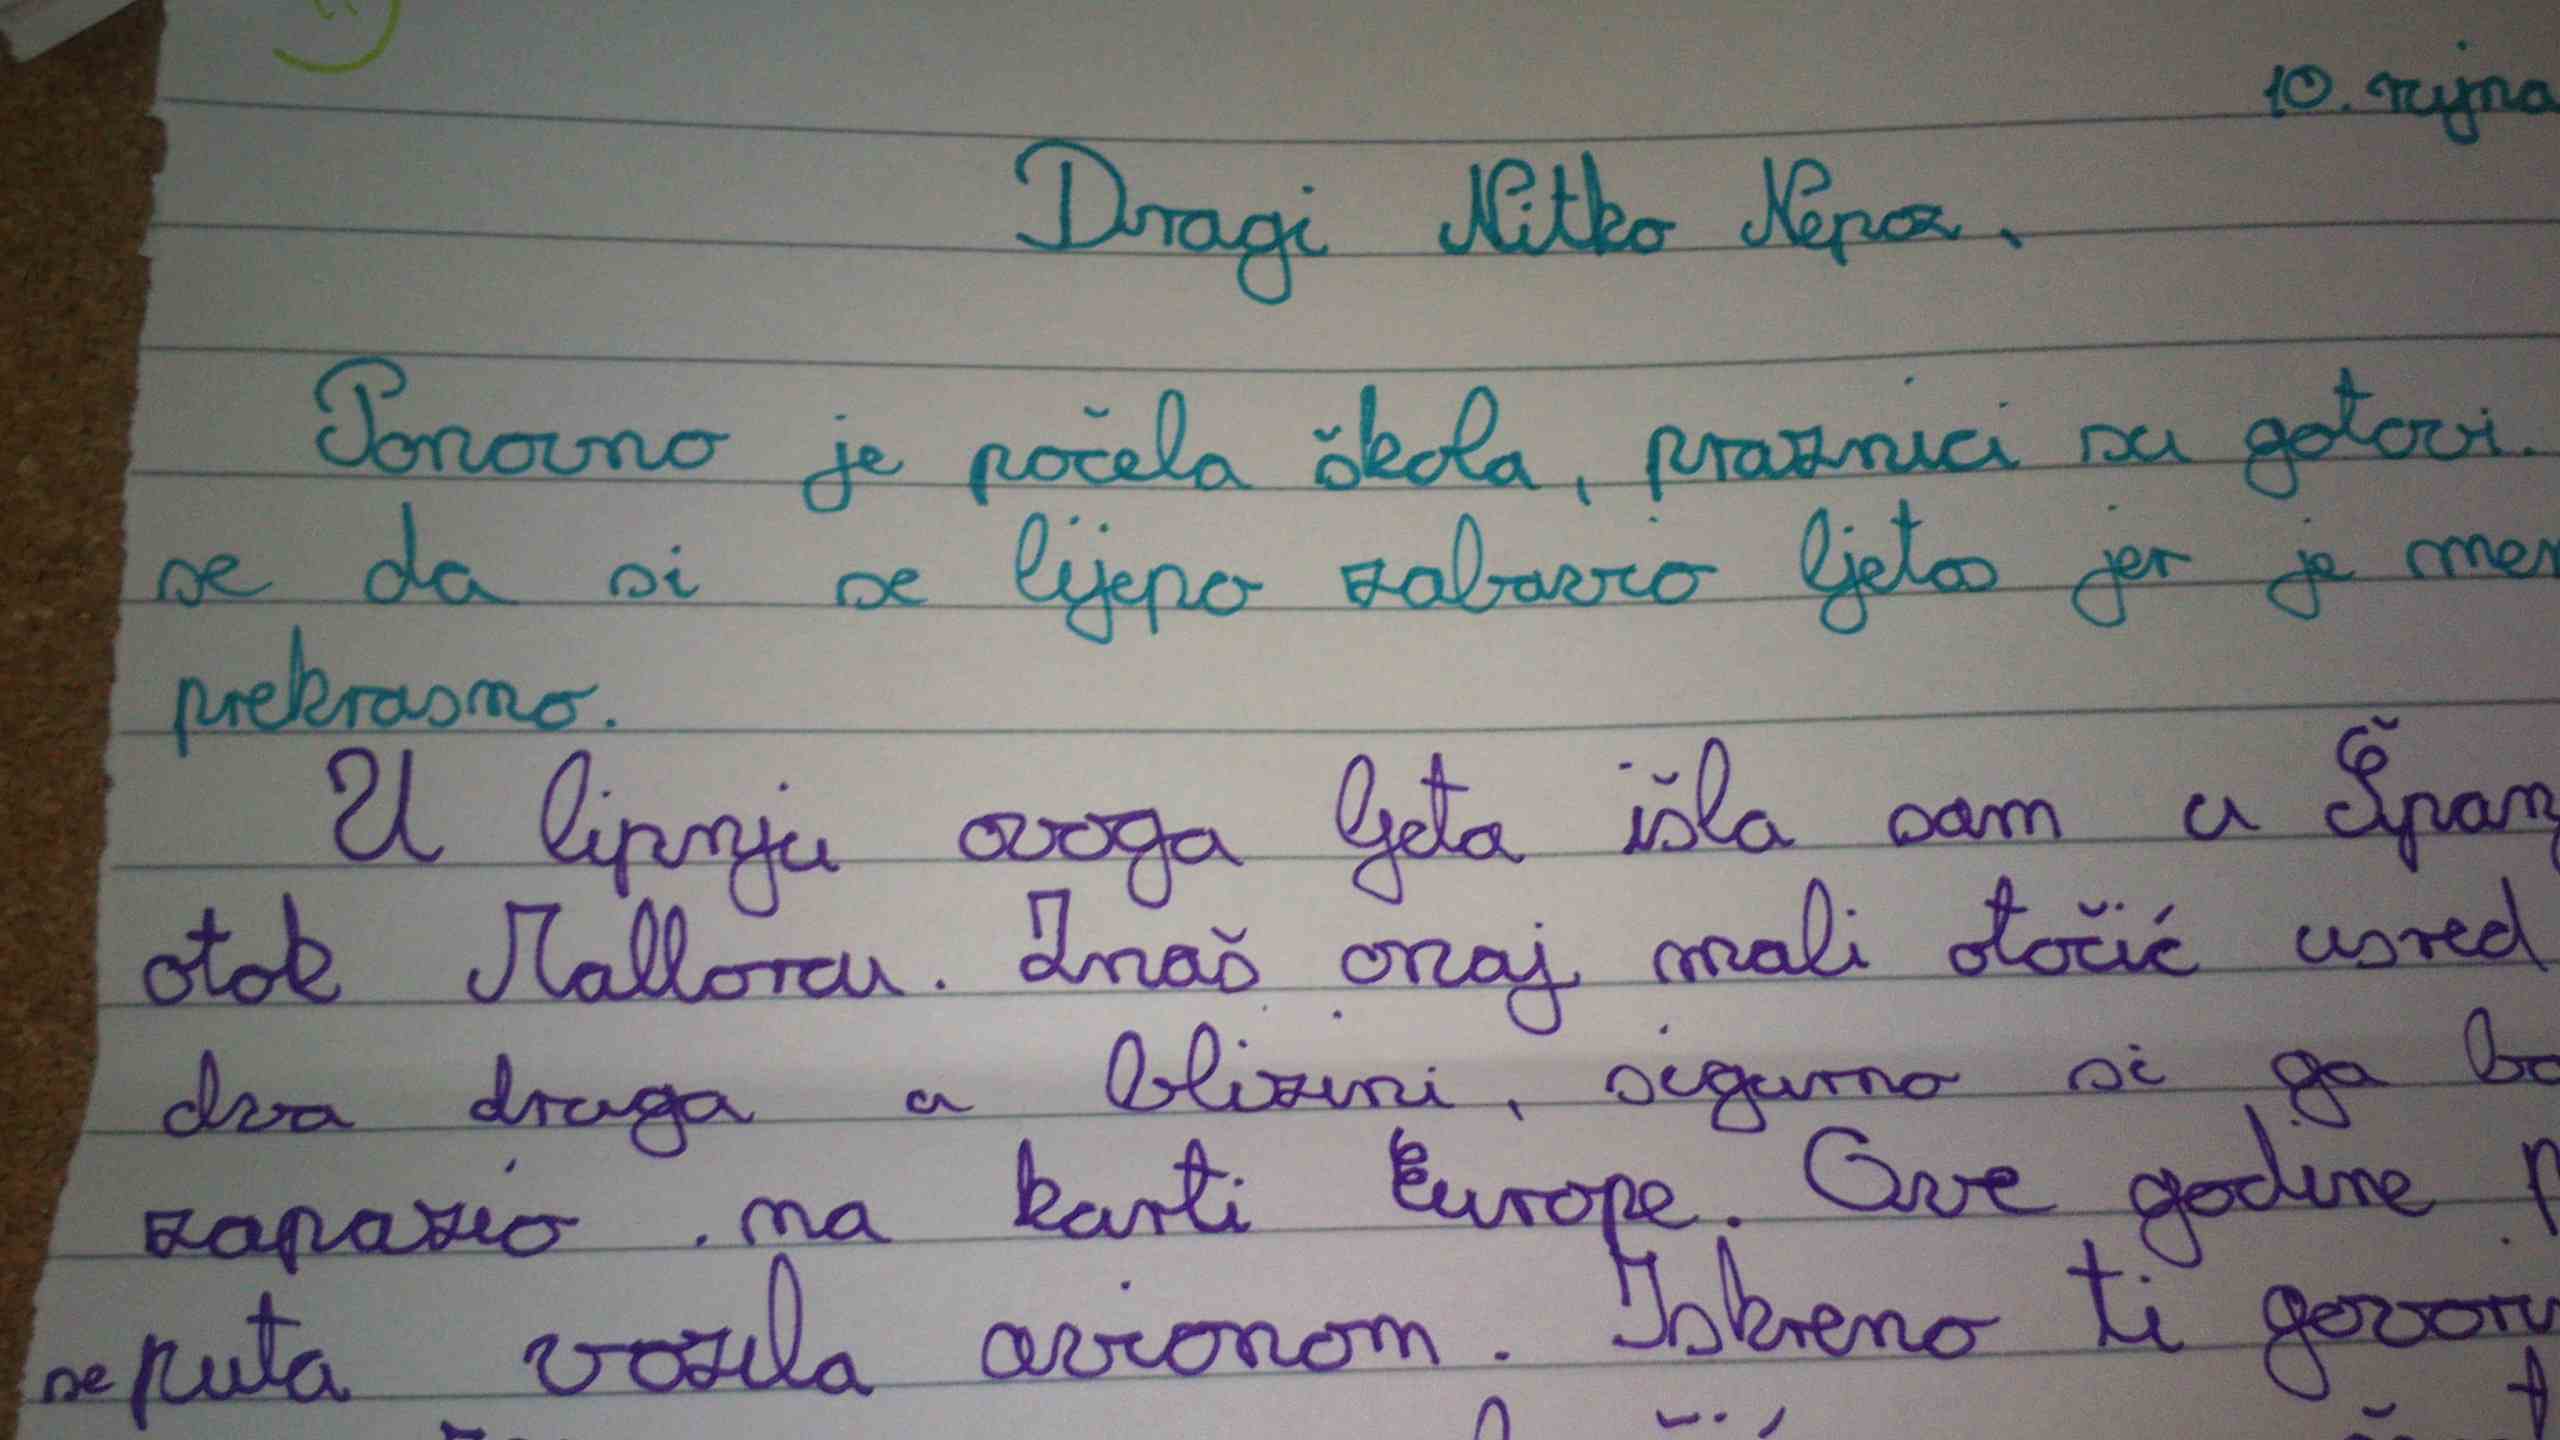 10. rujna
Dragi Nitko Nepoz,
Ponovno je počela škola, praznici su gotovi.
se da si se lijepo zabavio ljetos jer je men
prekrasno.
U lipnju ovoga ljeta išla sam u Španj
otok Mallorcu. Znaš onaj mali otočić usred
dva druga u blizini, sigurno si ga ba
zapazio na karti Europe. Ove godine p
se puta vozila avionom. Iskreno ti govoru